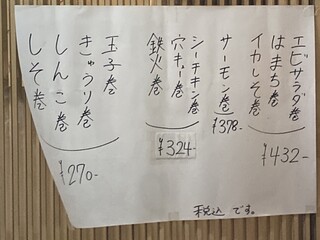 エビサラダ巻
はまち巻
イカしそ巻
¥432-
サーモン巻
¥378-
シーチキン巻
穴キュー巻
鉄火巻
¥324-
玉子巻
きゅうり巻
しんこ巻
しそ巻
¥270-
税込です。